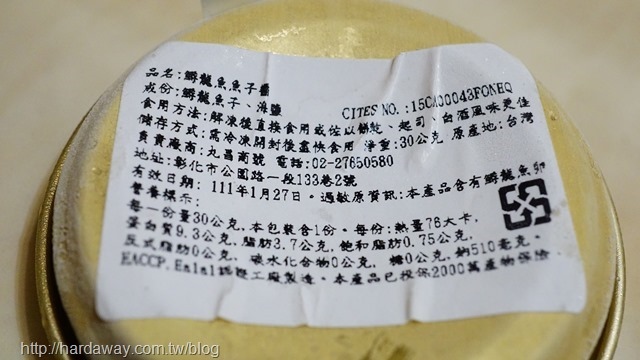 品名:鱘龍魚魚子醬
成份:鱘龍魚子、海鹽 CITES NO.:15CA00043FONEQ
食用方法:解凍後直接食用或佐以餅乾、起司、白酒風味更佳
儲存方式:需冷凍開封後盡快食用 淨重:30公克 原產地:台灣
負責廠商:九晶商號 電話:02-27650580
地址:彰化市公園路一段133巷2號
有效日期: 111年1月27日。過敏原資訊:本產品含有鱘龍魚卵
營養標示:
每一份量30公克,本包裝含1份。每份:熱量76大卡,
蛋白質9.3公克,脂肪3.7公克,飽和脂肪0.75公克,
反式脂肪0公克, 碳水化合物0公克, 糖0公克,鈉510毫克。
HACCP,Halal認證工廠製造。本產品已投保2000萬產物保險
http://hardaway.com.tw/blog